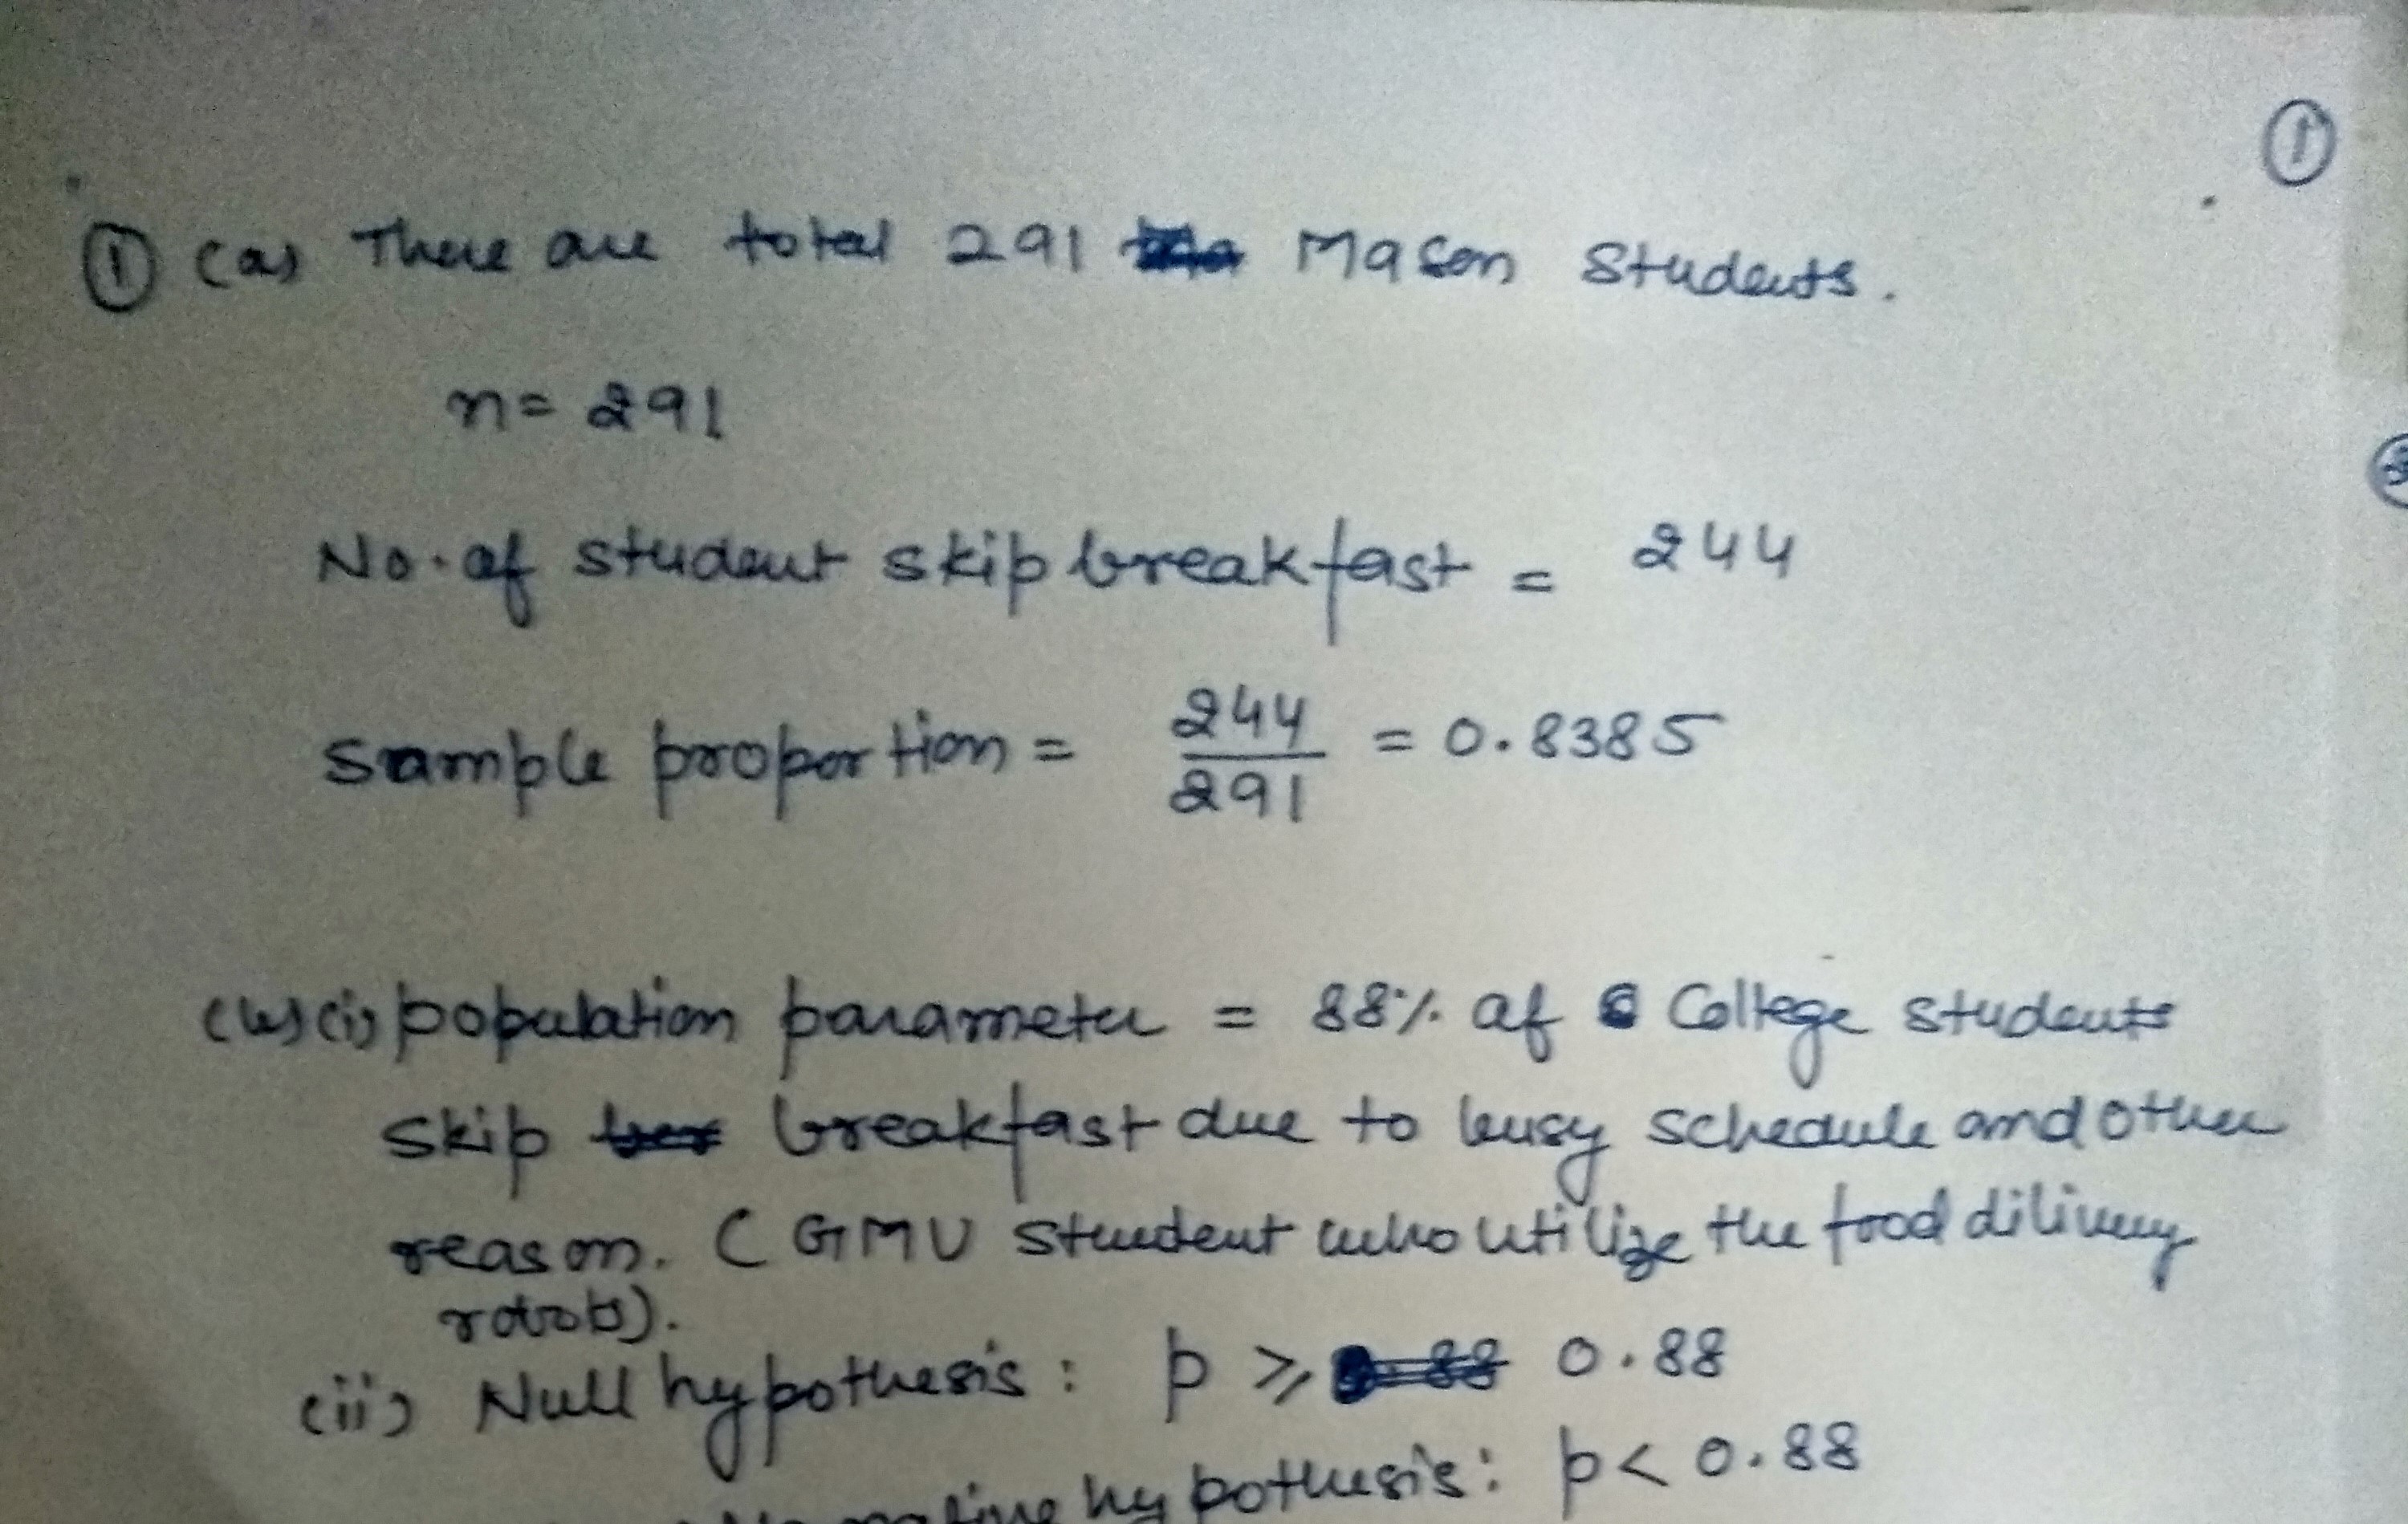 ①
① (a) There are total 291 Mason Students.
n = 291
No. of student skip breakfast = 244
Sample proportion = 244/291 = 0.8385
(b) (i) population parameter = 88% of College students
skip breakfast due to busy schedule and other
reason. ( GMU student who utilize the food dilivery
robots).
(ii) Null hypothesis : p ⩾ 0.88
hypothesis : p < 0.88